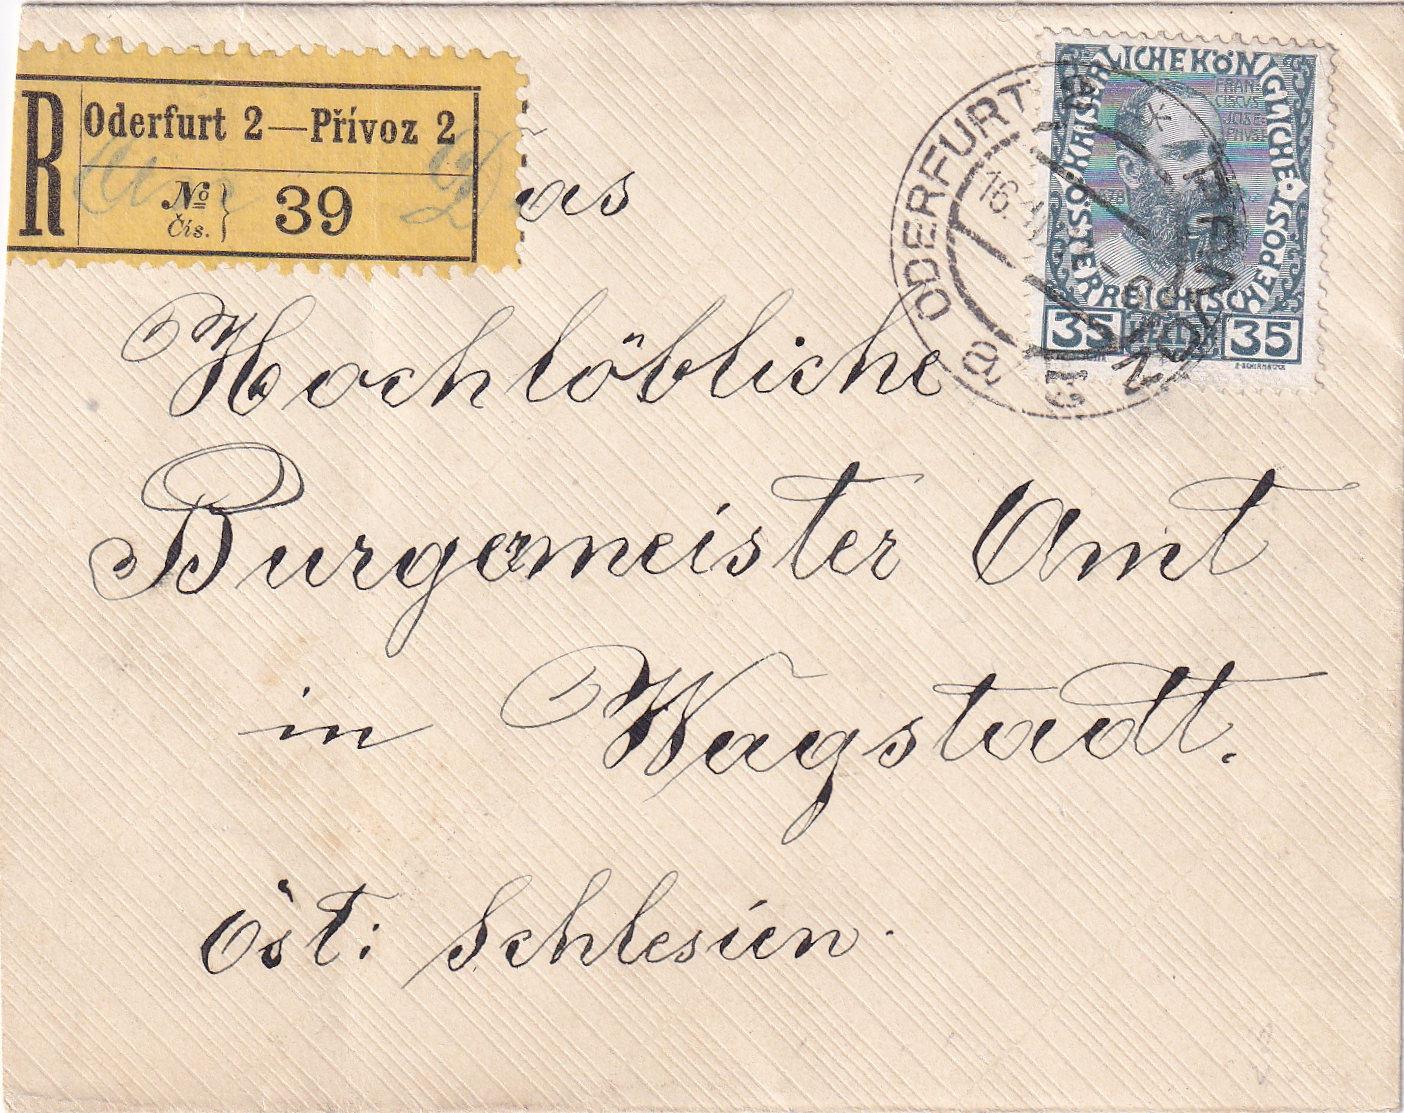 R
Oderfurt 2—Přívoz 2
№ Čís. } 39
An Das
Hochlöbliche
Burgermeister Amt
in Wagstadt.
Öst: Schlesien.
KAISERLICHE KÖNIGLICHE
ÖSTERREICHISCHE POST
FRAN-
CISCVS
JOSE-
PHVS I
35 HELLER 35
ODERFURT
16.